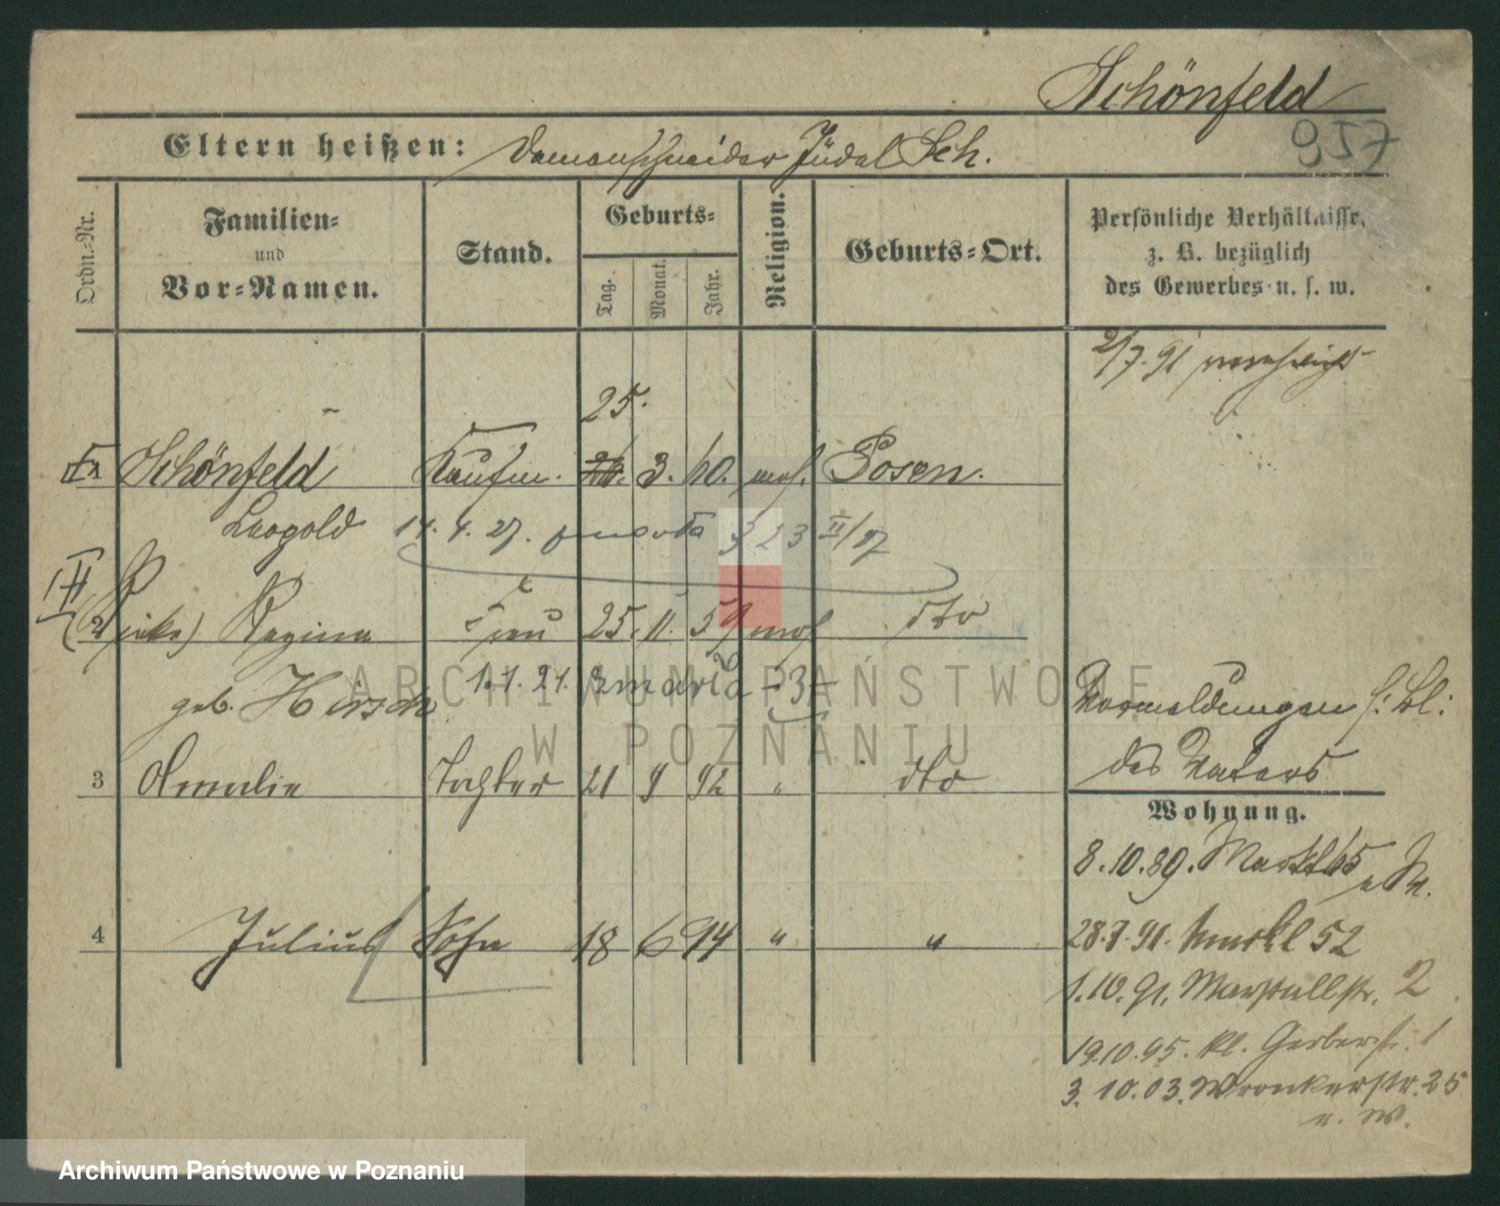 Schönfeld
957
Eltern heißen: Damenschneider Jüdel Sch.
Ordn.-Nr.
Familien-
und
Vor-Namen.
Stand.
Geburts-
Tag.
Monat.
Jahr.
Religion.
Geburts-Ort.
Persönliche Verhältnisse,
z. B. bezüglich
des Gewerbes u. s. w.
2/7. 91
25.
Schönfeld Kaufm. 3. 60. mos. Posen.
Leopold 14. 4. 27. 23 II/27
II
2 Regina Frau 25. 11. 59 mos dto
geb. Hirsch 1.1.21. zmarła
3 Amalie Tochter 21 9 92 " dto
Vormeldungen s. Bl:
des Vaters
Wohnung.
8.10.89. Markt 65
4 Julius Sohn 18 6 94 " "
28.7.91. Markt 52
1.10.91. Marstallstr. 2
19.10.95. kl. Gerberstr. 1
3.10.03. Wronkerstr. 25
u. W.
ARCHIWUM PAŃSTWOWE
W POZNANIU
Archiwum Państwowe w Poznaniu